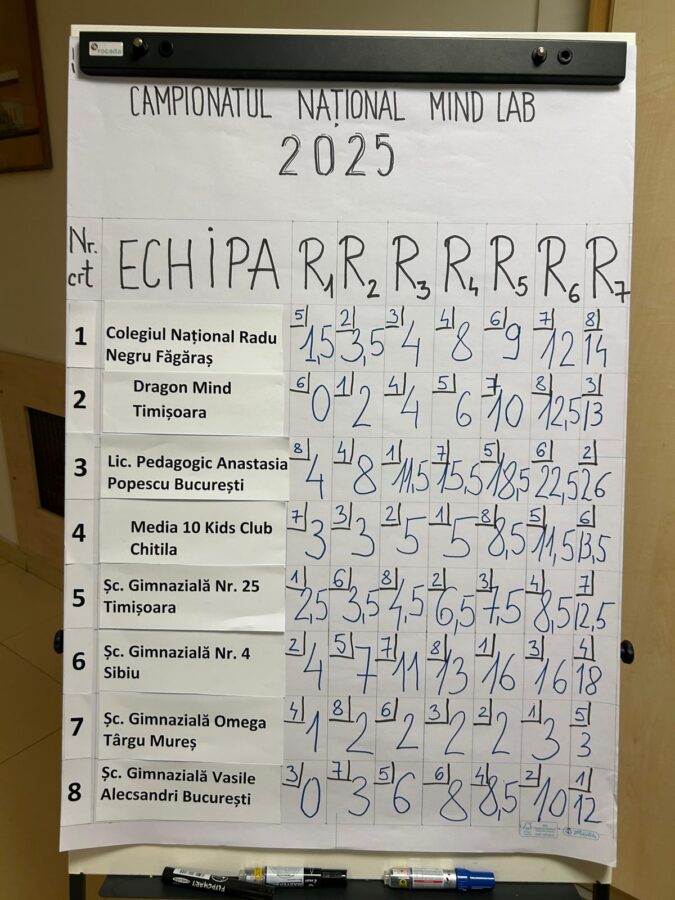 rocada
CAMPIONATUL NAȚIONAL MIND LAB
2025
Nr. crt ECHIPA R1 R2 R3 R4 R5 R6 R7
1 Colegiul Național Radu Negru Făgăraș 5 1,5 2 3,5 3 4 4 8 6 9 7 12 8 14
2 Dragon Mind Timișoara 6 0 1 2 4 4 5 6 7 10 8 12,5 3 13
3 Lic. Pedagogic Anastasia Popescu București 8 4 4 8 1 11,5 7 15,5 5 18,5 6 22,5 2 26
4 Media 10 Kids Club Chitila 7 3 3 3 2 5 1 5 8 8,5 5 11,5 6 13,5
5 Șc. Gimnazială Nr. 25 Timișoara 1 2,5 6 3,5 8 4,5 2 6,5 3 7,5 4 8,5 7 12,5
6 Șc. Gimnazială Nr. 4 Sibiu 2 4 5 7 7 11 8 13 1 16 3 16 4 18
7 Șc. Gimnazială Omega Târgu Mureș 4 1 8 2 6 2 3 2 2 2 1 3 5 3
8 Șc. Gimnazială Vasile Alecsandri București 3 0 7 3 5 6 6 8 4 8,5 2 10 1 12
FLIPCHART